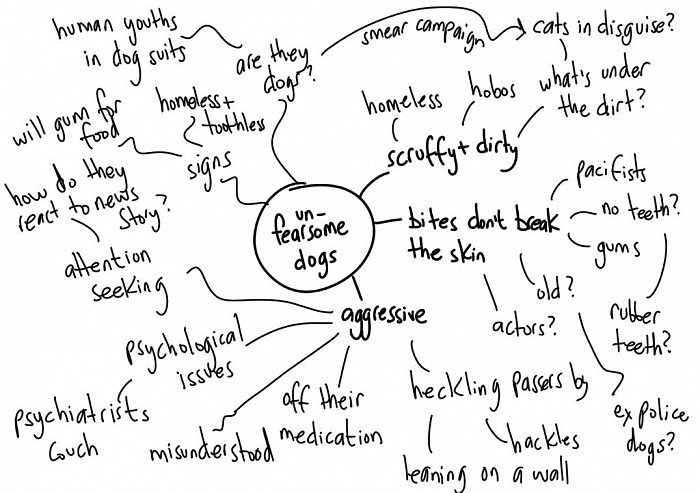 human youths
in dog suits
are they
dogs?
smear campaign
cats in disguise?
what's under
the dirt?
homeless
hobos
scruffy + dirty
homeless +
toothless
will gum for
food
signs
how do they
react to news
story?
attention
seeking
un-
fearsome
dogs
bites don't break
the skin
pacifists
no teeth?
gums
rubber
teeth?
old?
actors?
ex police
dogs?
aggressive
psychological
issues
psychiatrists
couch
misunderstood
off their
medication
heckling passers by
hackles
leaning on a wall